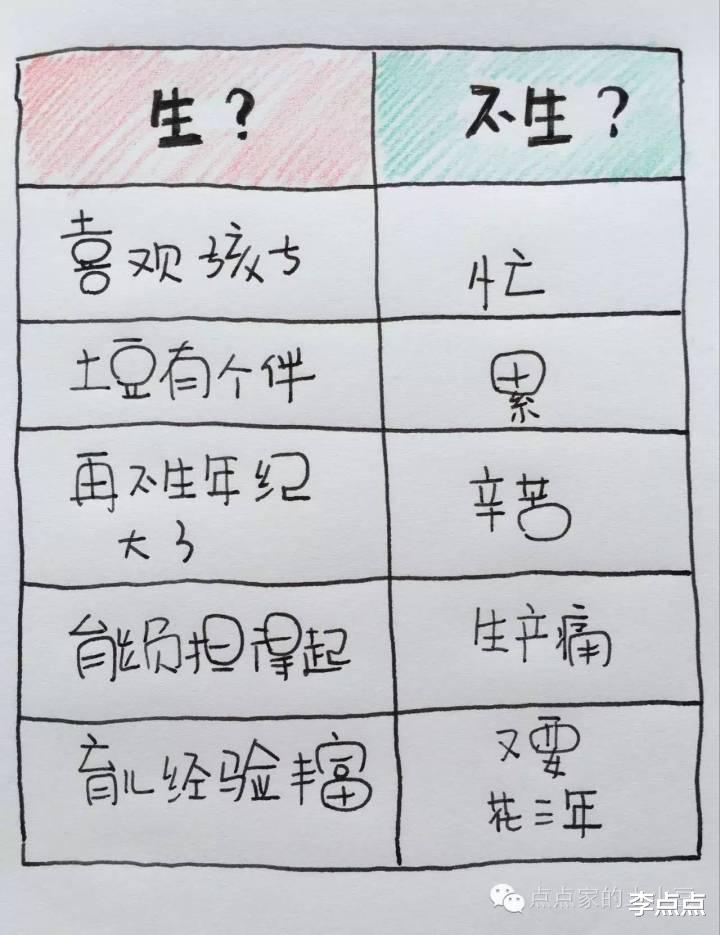 生？ 不生？
喜欢孩子 忙
土豆有个伴 累
再不生年纪
大了 辛苦
能负担得起 生产痛
育儿经验丰富 又要
花三年
李点点